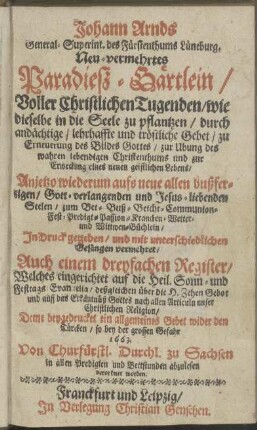 Johann Arnds
General-Superint. des Fürstenthums Lüneburg,
Neu-vermehrtes
Paradieß-Gärtlein/
Voller Christlichen Tugenden/wie
dieselbe in die Seele zu pflantzen/durch
andächtige/lehrhaffte und tröstliche Gebet/zu
Erneuerung des Bildes Gottes/zur Ubung des
wahren lebendigen Christenthums und zur
Erweckung eines neuen geistlichen Lebens/
Anjetzo wiederum aufs neue allen bußfer-
tigen/Gott-verlangenden und Jesus-liebenden
Seelen/zum Bet-Buß-Beicht-Communion-
Fest-Predigt-Passion-Krancken-Wetter-
und Wittwen-Büchlein/
In Druck gegeben/und mit unterschiedlichen
Gesängen vermehret/
Auch einem dreyfachen Register/
Welches eingerichtet auf die Heil. Sonn- und
Festtags Evangelia/deßgleichen über die H. Zehen Gebot
und auß das Erkäntnüß Gottes nach allen Articuln unser
Christlichen Religion/
Deme beygedrucket ein allgemeines Gebet wider den
Türcken/so bey der großen Gefahr
1663.
Von Churfürstl. Durchl. zu Sachsen
in allen Predigten und Betstunden abzulesen
verordnet worden.
Franckfurt und Leipzig/
In Verlegung Christian